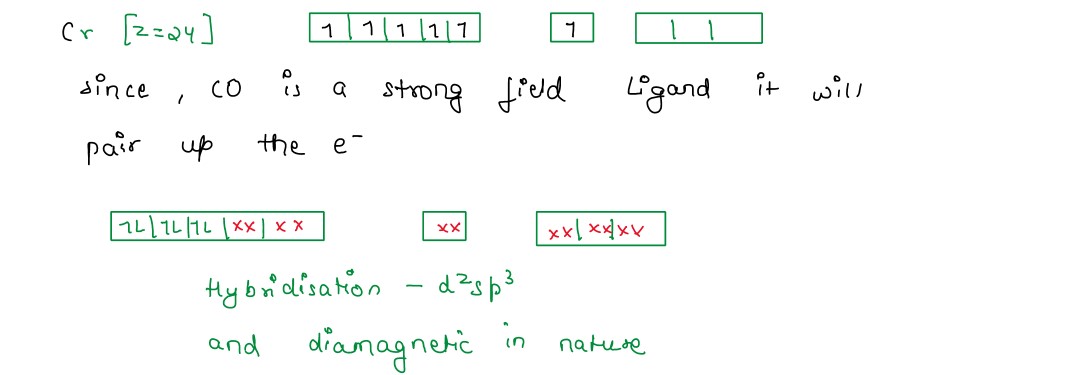 Cr [z=24] 1 | 1 | 1 | 1 | 1 1 | |
since, CO is a strong field Ligand it will
pair up the e⁻
1L | 1L | 1L | xx | xx xx xx | xx | xx
Hybridisation - d²sp³
and diamagnetic in nature